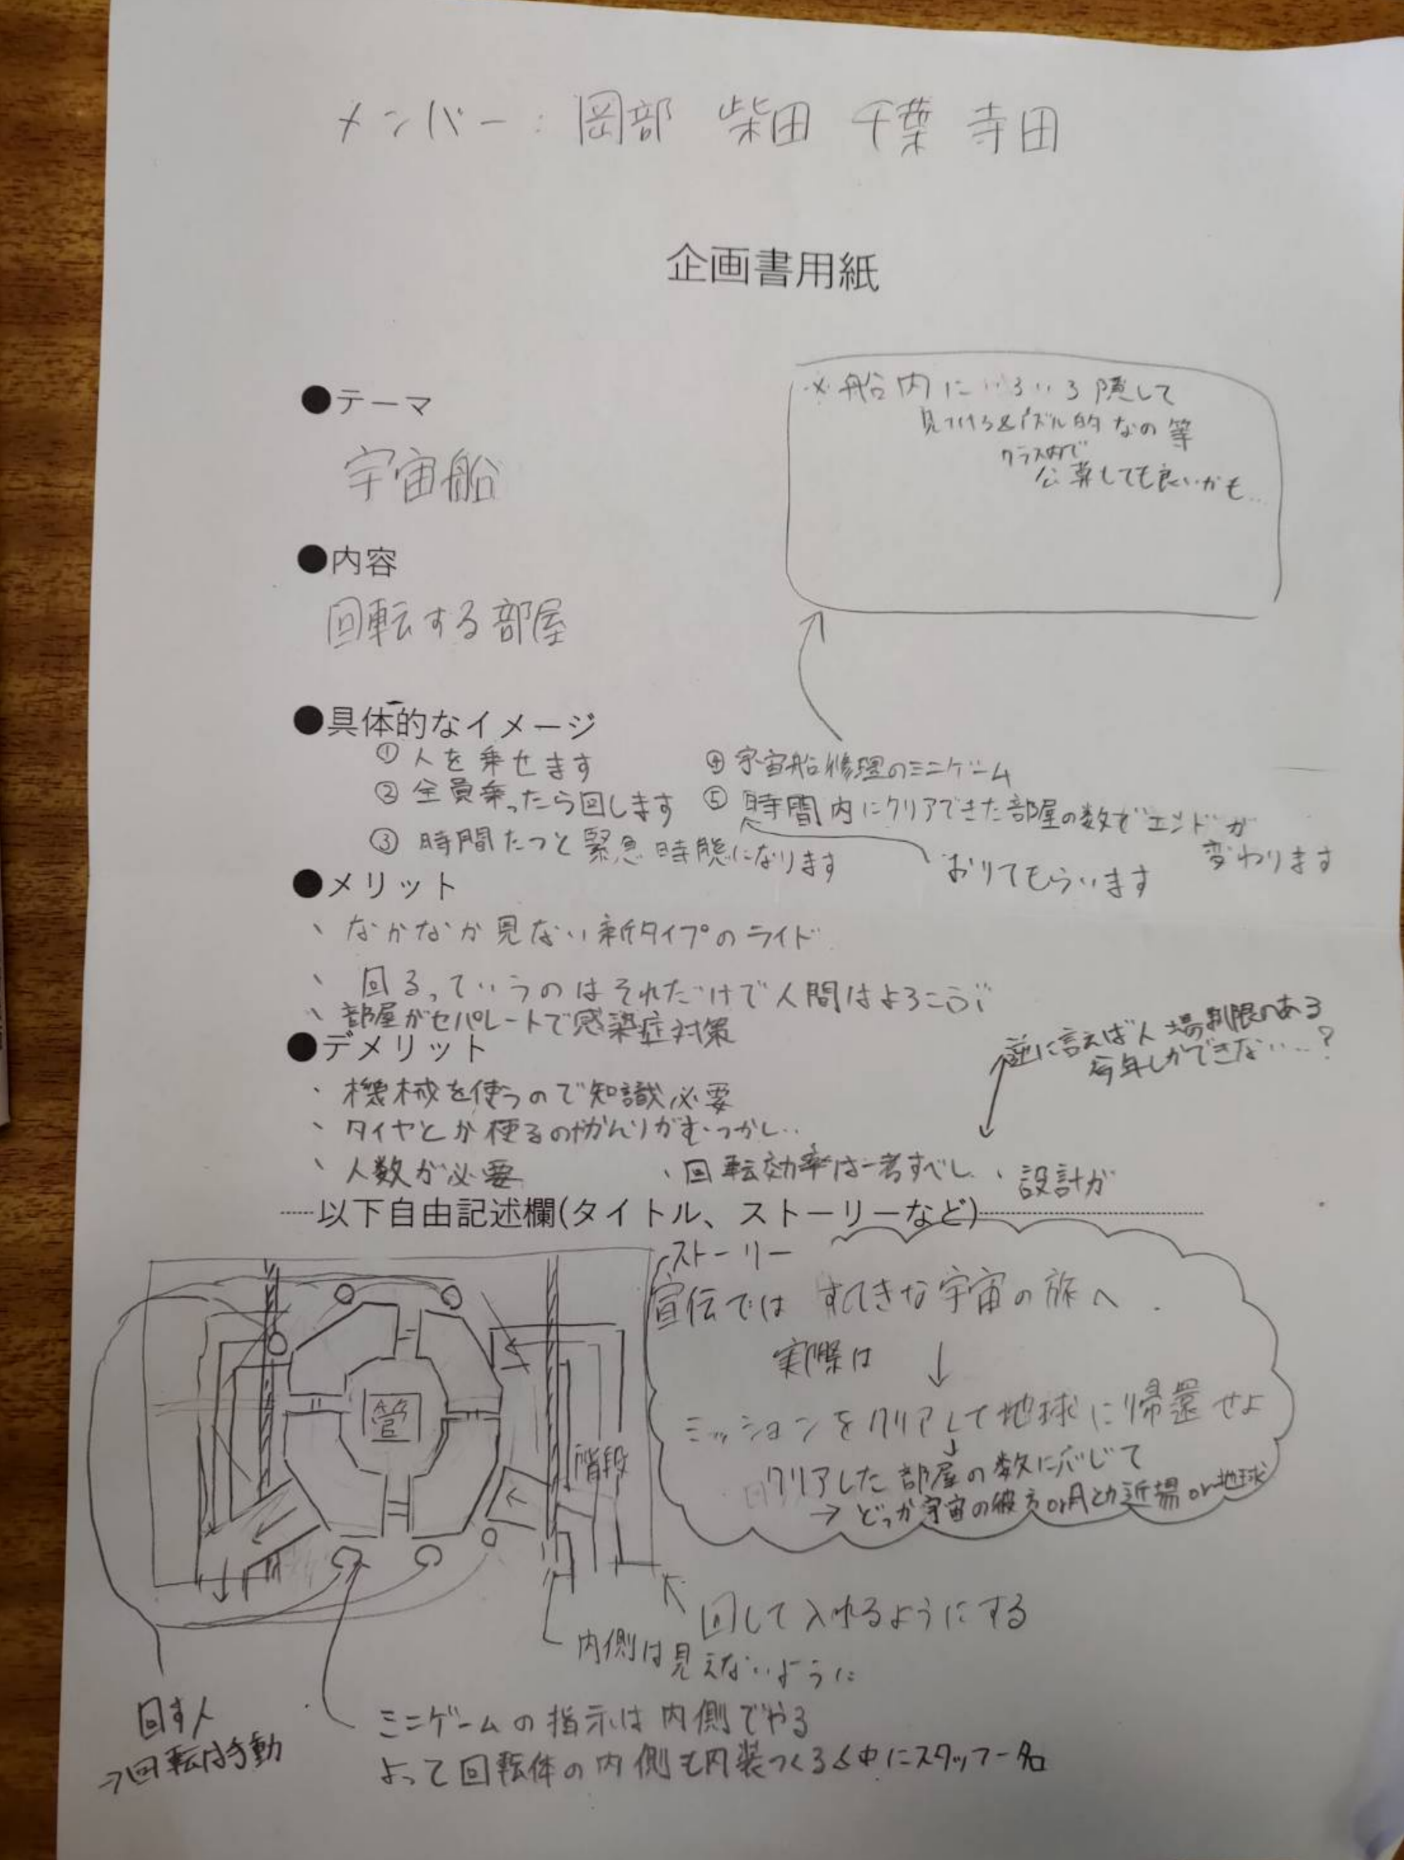 メンバー：岡部 柴田 千葉 寺田
企画書用紙
●テーマ
宇宙船
※船内にいろいろ隠して
見つける&パズル的なの等
クラス内で
公募しても良いかも…
●内容
回転する部屋
●具体的なイメージ
① 人を乗せます
② 全員乗ったら回します
③ 時間たつと緊急時態になります
④ 宇宙船修理のミニゲーム
⑤ 時間内にクリアできた部屋の数でエンドが
変わります
おりてもらいます
●メリット
、なかなか見ない新タイプのライド
、回るっていうのはそれだけで人間はよろこぶ
、部屋がセパレートで感染症対策
逆に言えば入場制限のある
今年しかできない…？
●デメリット
・機械を使うので知識必要
・タイヤとか使るの
がむつかし..
、人数が必要
・回転効率は一考すべし
・設計が
以下自由記述欄(タイトル、ストーリーなど)
ストーリー
宣伝では すてきな宇宙の旅へ.
実際は ↓
ミッションをクリアして地球に帰還せよ
クリアした部屋の数に応じて
→どっか宇宙の彼方or月とか近場or地球
管
階段
回して入れるようにする
内側は見えないように
回す人
→回転は手動
ミニゲームの指示は内側でやる
よって回転体の内側も内装つくる&中にスタッフ一名